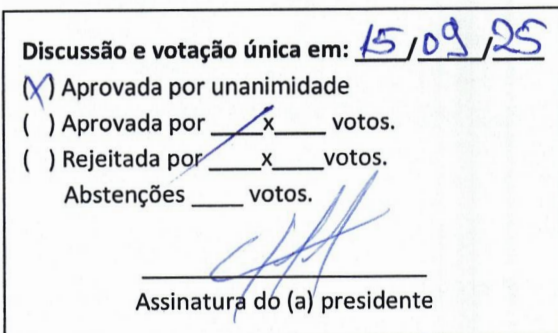 Discussão e votação única em: 15/09/25
(X) Aprovada por unanimidade
( ) Aprovada por ____x____ votos.
( ) Rejeitada por ____x____votos.
Abstenções ____ votos.
Assinatura do (a) presidente